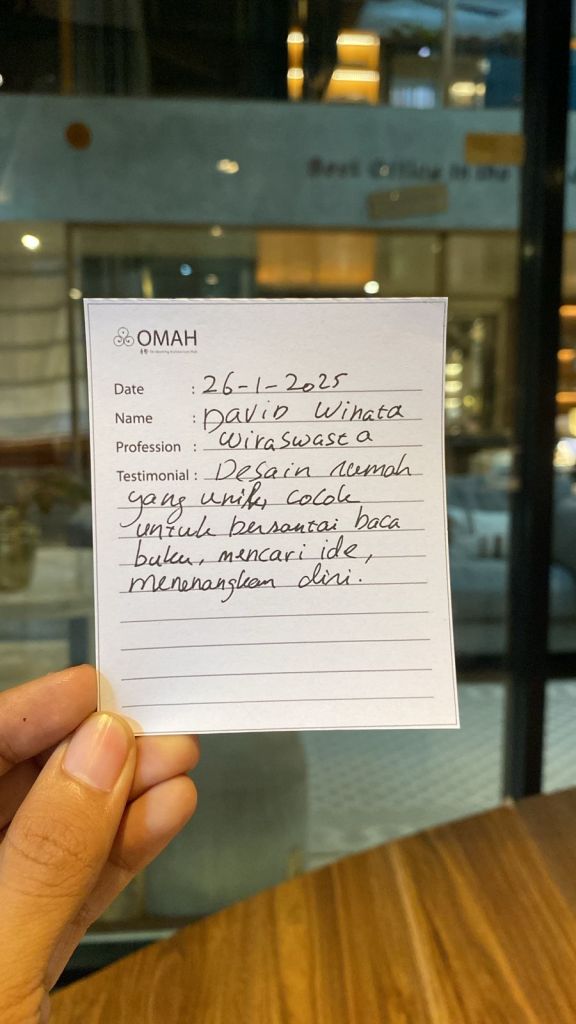 Best Office in the
OMAH
Date : 26-1-2025
Name : David Winata
Profession : Wiraswasta
Testimonial : Desain rumah
yang unik, cocok
untuk bersantai baca
buku, mencari ide,
menenangkan diri.